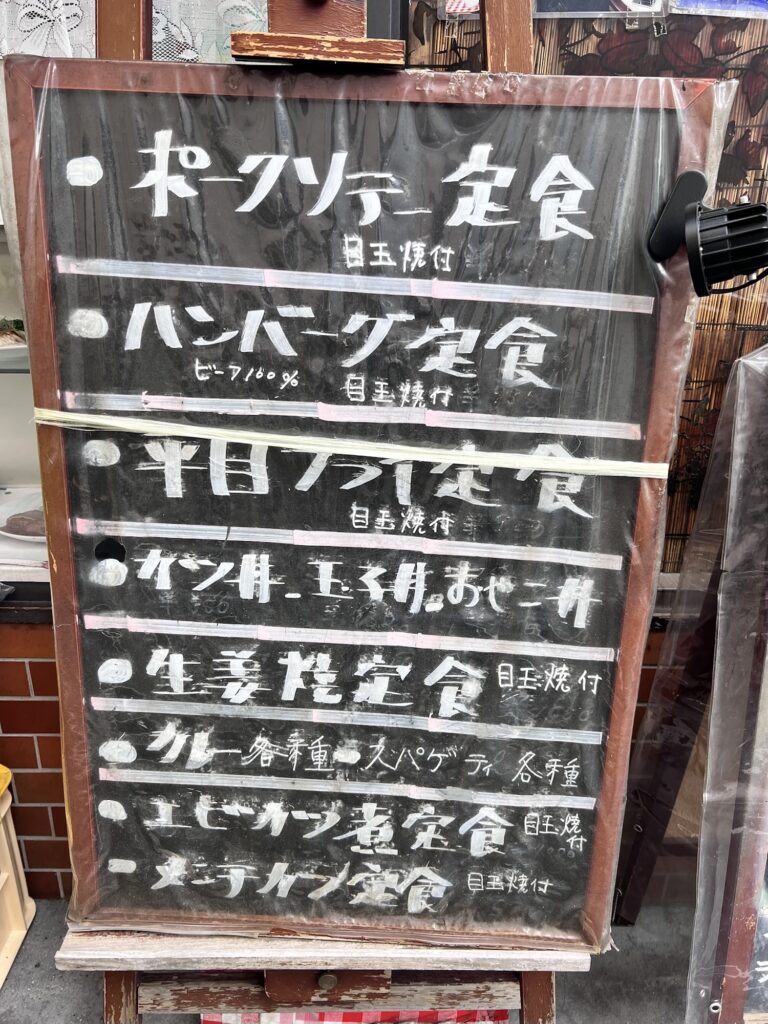 ・ポークソテー定食
目玉焼付
・ハンバーグ定食
ビーフ100% 目玉焼付
・平目フライ定食
目玉焼付
・カツ丼・玉子丼・おやこ丼
・生姜焼定食 目玉焼付
・カレー各種・スパゲティ各種
・エビカツ煮定食 目玉焼付
・メンチカツ定食 目玉焼付